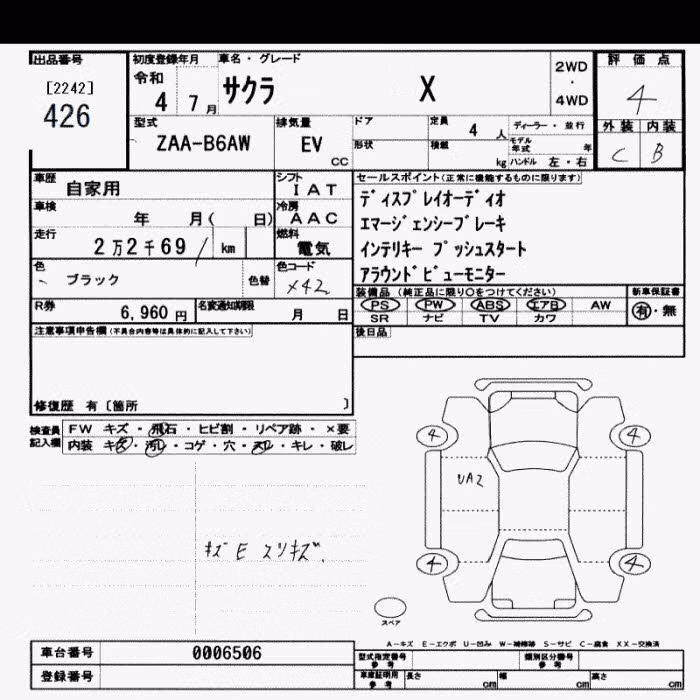 出品番号
[2242]
426
初度登録年月
令和
4 7月
車名・グレード
サクラ X
2WD
・
4WD
評価点
4
外装 内装
C B
型式
ZAA-B6AW
排気量
EV
CC
ドア
形状
定員 4人
積載 kg
ディーラー・並行
モデル年式 年
ハンドル 左・右
車歴
自家用
シフト
IAT
車検
年 月( 日)
冷房
AAC
走行
2万2千69/ km
燃料
電気
色
ブラック
色替
色コード
X42
R券
6,960円
名変通知期限
月 日
セールスポイント(正常に機能するものに限ります)
ディスプレイオーディオ
エマージェンシーブレーキ
インテリキー プッシュスタート
アラウンドビューモニター
装備品(純正品に限り○をつけてください)
PS PW ABS エアB AW
SR ナビ TV カワ
新車保証書
有・無
後日品
注意事項申告欄(不具合内容等は具体的に記入して下さい)
修復歴 有〔箇所 〕
検査員記入欄
FW キズ・飛石・ヒビ割・リペア跡・×要
内装 キズ・汚レ・コゲ・穴・スレ・キレ・破レ
キズE スリキズ
4
4
UA2
4
4
スペア
A-キズ E-エクボ U-凹み W-補修跡 S-サビ C-腐食 XX-交換済
車台番号 0006506
登録番号
型式指定番号
参考
類別区分番号
参考
車庫証明用
参考
長さ cm
幅 cm
高さ cm